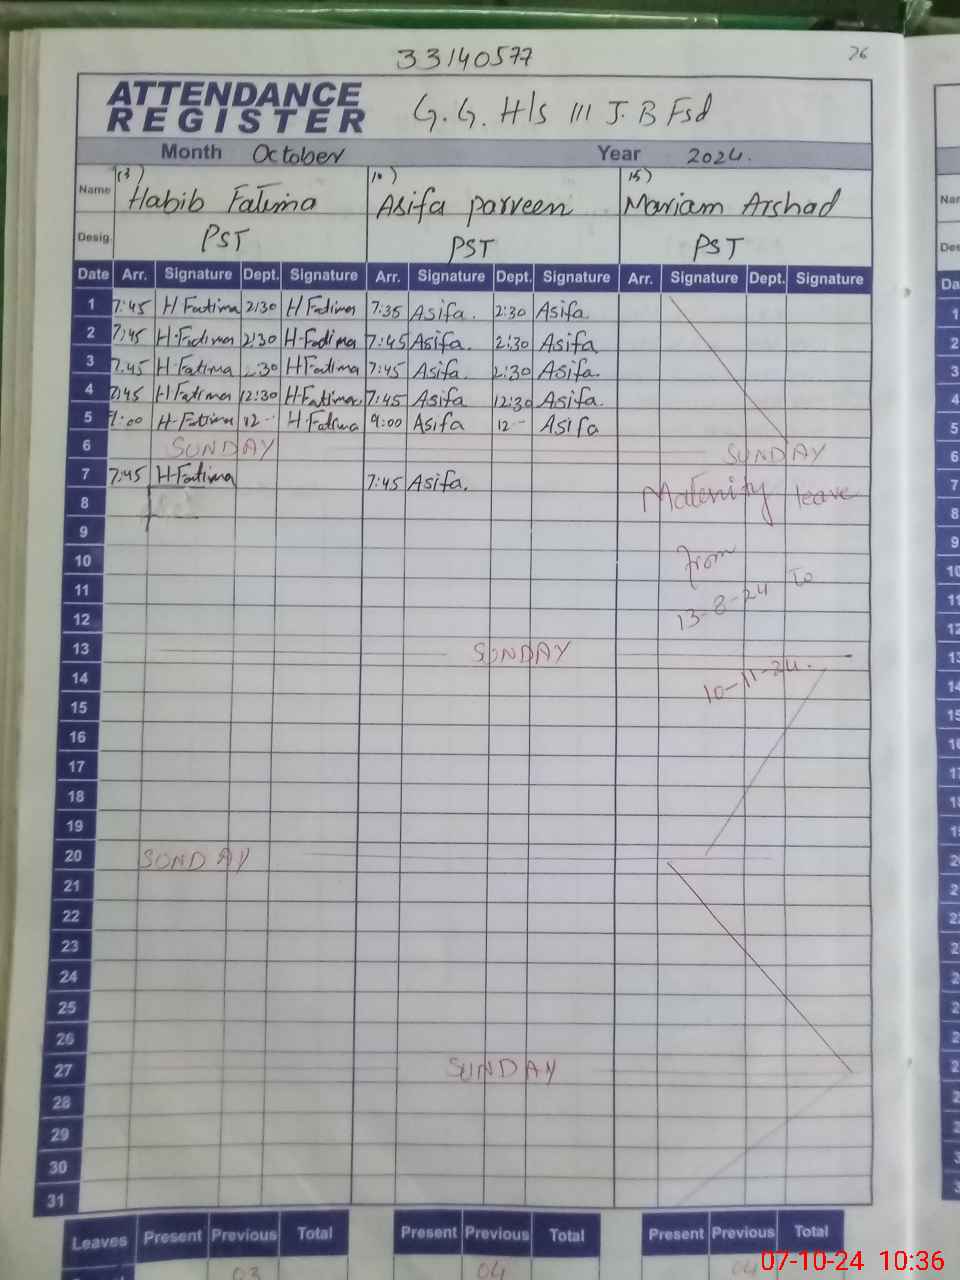 33140577
26
ATTENDANCE
REGISTER
G.G. H/s 111 J.B Fsd
Month October Year 2024.
Name 13) Habib Fatima 14) Asifa parveen 15) Mariam Arshad
Desig. PST PST PST
Date Arr. Signature Dept. Signature Arr. Signature Dept. Signature Arr. Signature Dept. Signature
1 7:45 H Fatima 2:30 H Fatima 7:35 Asifa. 2:30 Asifa
2 7:45 H-Fatima 2:30 H-Fatima 7:45 Asifa. 2:30 Asifa
3 7:45 H-Fatima 2:30 H Fatima 7:45 Asifa. 2:30 Asifa.
4 7:45 H Fatima 12:30 H-Fatima. 7:45 Asifa 12:30 Asifa.
5 9:00 H-Fatima 12- H Fatima 9:00 Asifa 12- Asifa
6 SUNDAY SUNDAY
7 7:45 H-Fatima 7:45 Asifa. Maternity leave
8
9
10 from
11 To
12 13-8-24
13 SUNDAY
14 10-11-24.
15
16
17
18
19
20 SUNDAY
21
22
23
24
25
26
27 SUNDAY
28
29
30
31
Leaves Present Previous Total Present Previous Total Present Previous Total
03 04 04
07-10-24 10:36